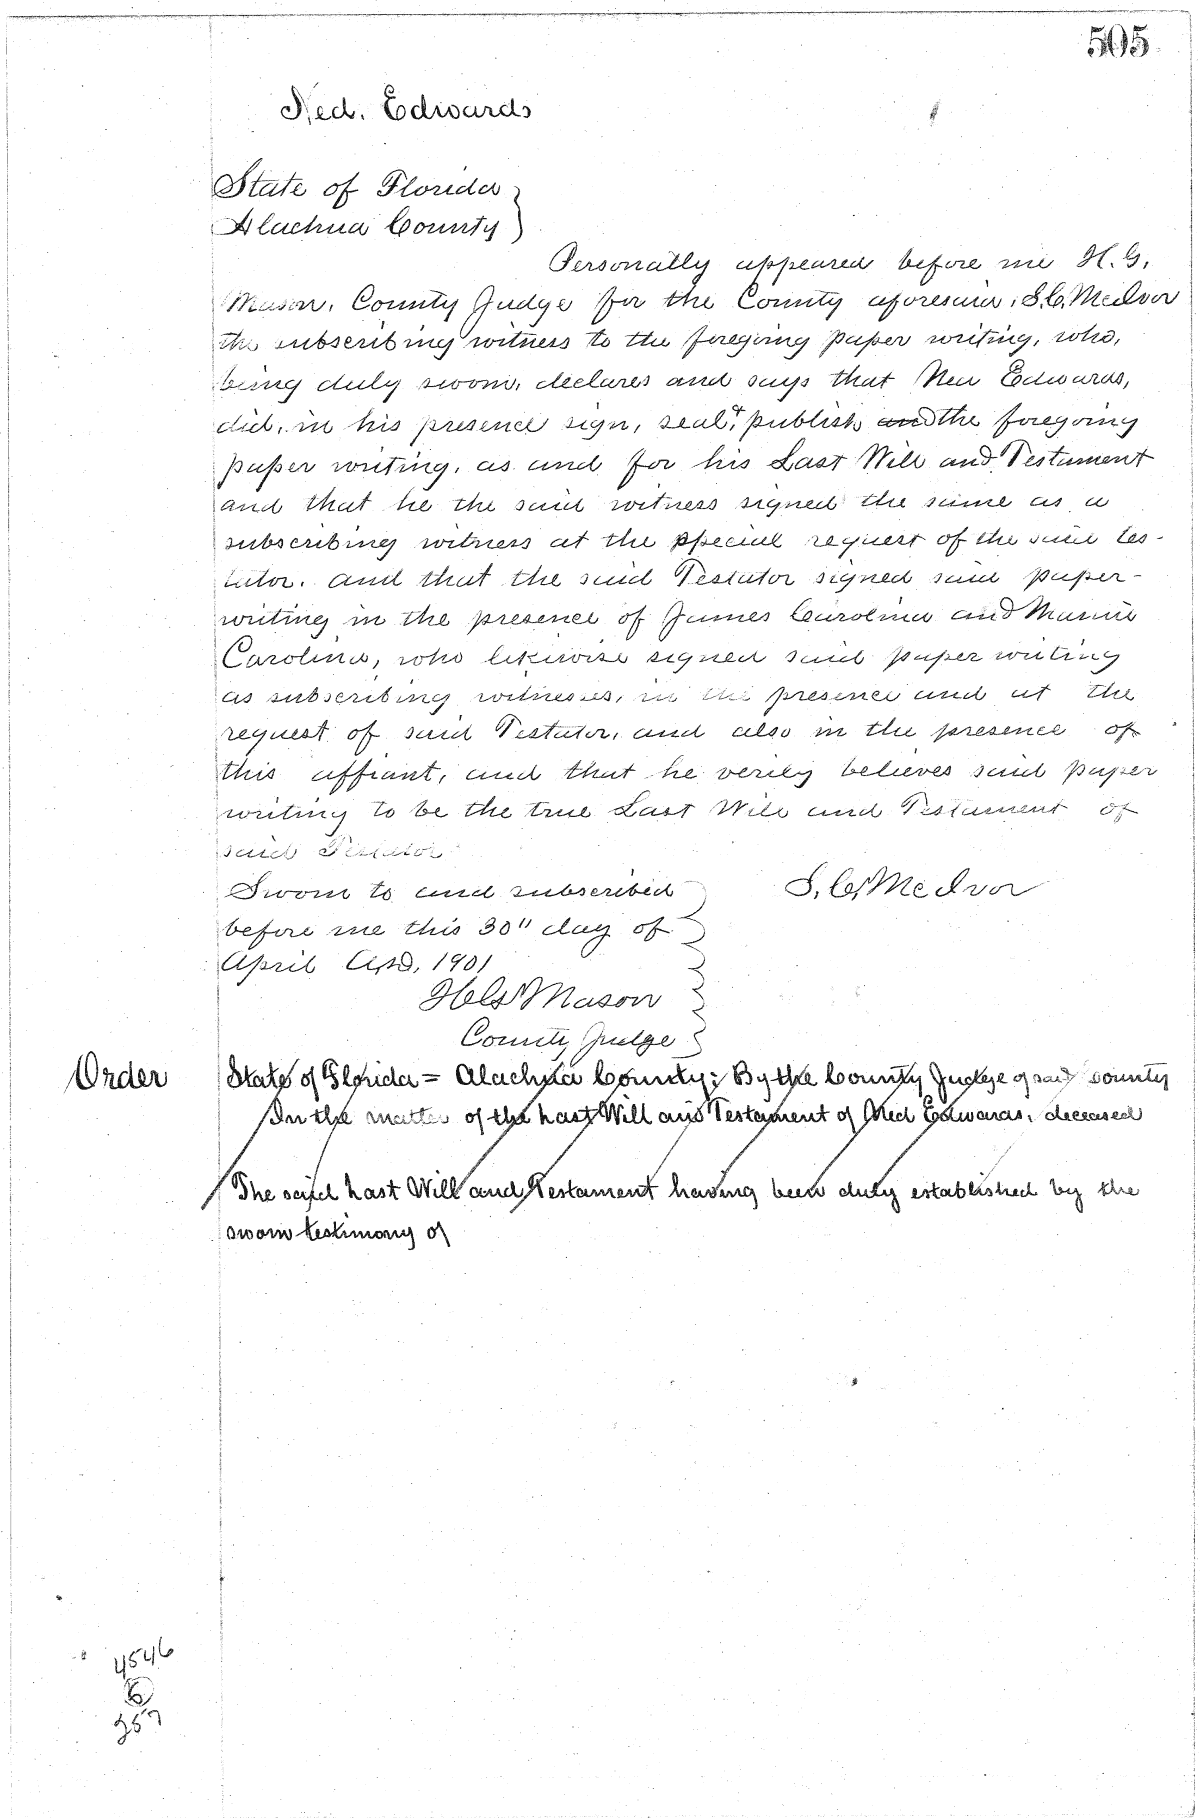 505
Ned. Edwards
State of Florida
Alachua County
Personally appeared before me H. G.
Mason, County Judge for the County aforesaid, S. C. McIvor
the subscribing witness to the foregoing paper writing, who,
being duly sworn, declares and says that Ned Edwards,
did, in his presence sign, seal, & publish and the foregoing
paper writing, as and for his Last Will and Testament
and that he the said witness signed the same as a
subscribing witness at the special request of the said tes-
tator. and that the said Testator signed said paper-
writing in the presence of James Carolina and
Carolina, who likewise signed said paper writing
as subscribing witnesses, in the presence and at the
request of said Testator, and also in the presence of
this affiant, and that he verily believes said paper
writing to be the true Last Will and Testament of
said Testator.
Sworn to and subscribed S. C. McIvor
before me this 30" day of
April A.D. 1901
H G Mason
County Judge
Order State of Florida = Alachua County: By the County Judge of said county
In the matter of the Last Will and Testament of Ned Edwards, deceased
The said Last Will and Testament having been duly established by the
sworn testimony of
4546